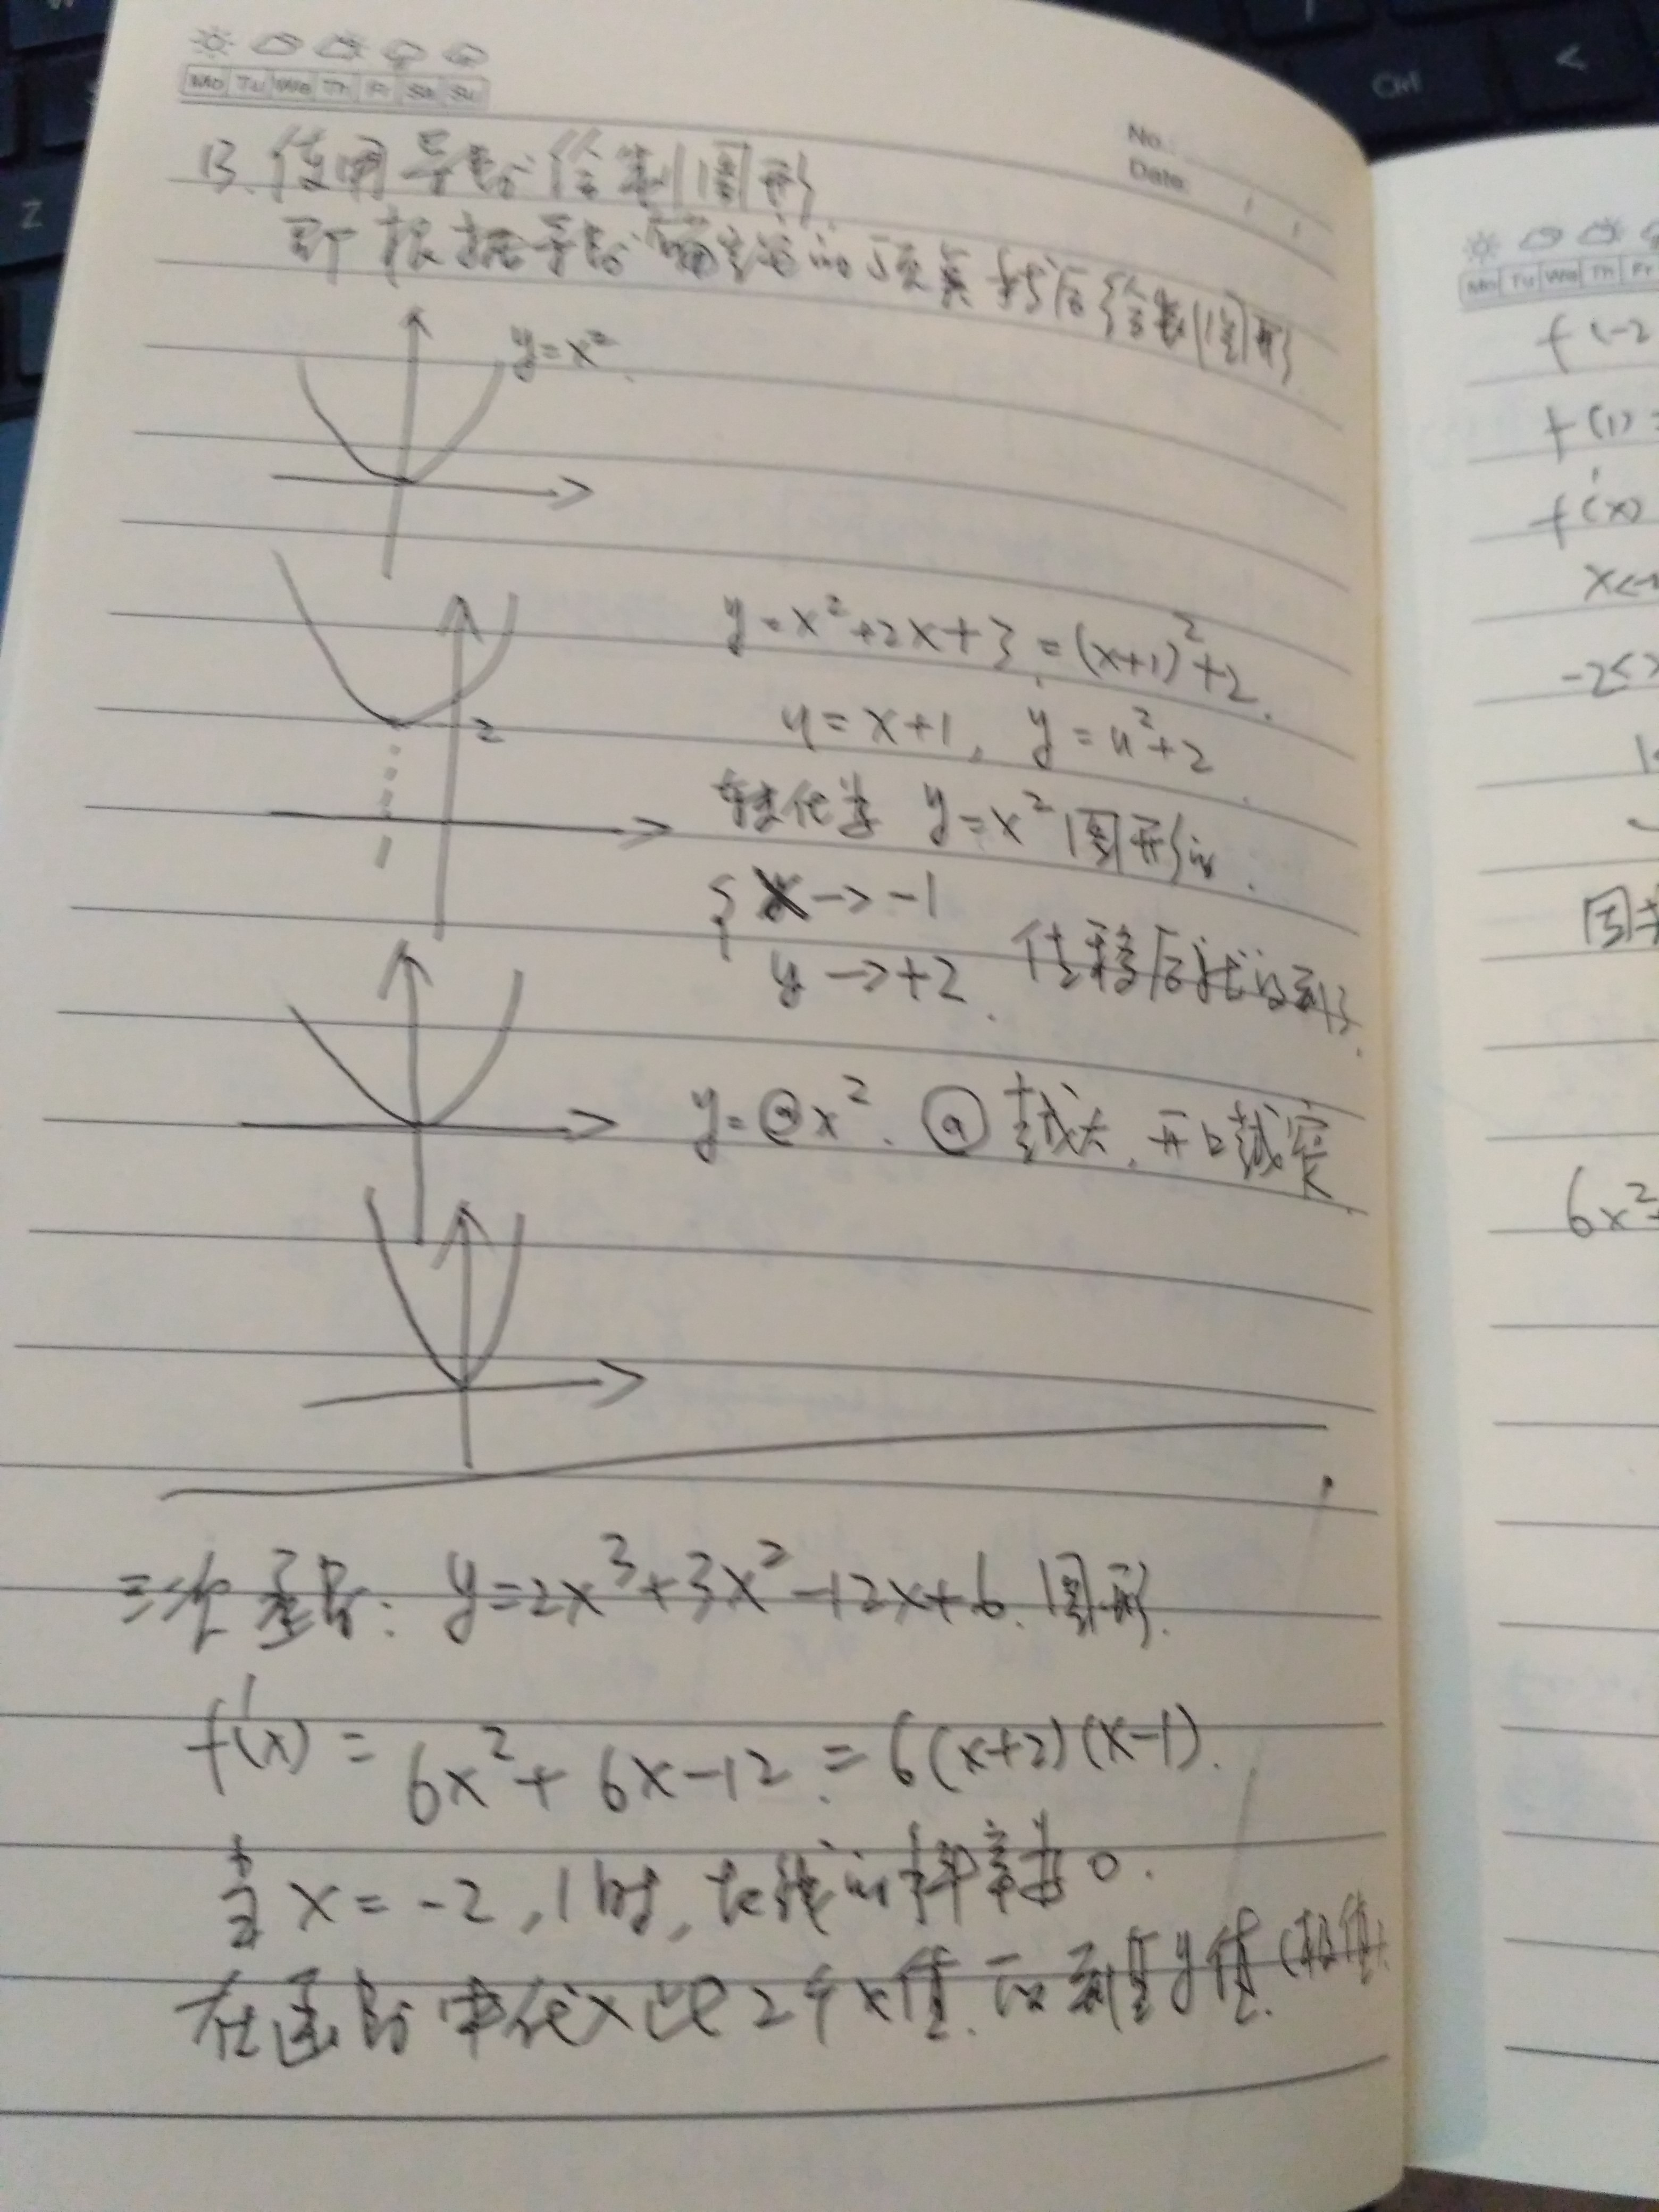 Mo Tu We Th Fr Sa Su
No.
Date
13. 使用导数绘制图形
即根据导数确定的顶点然后绘制图形
y=x²
y=x²+2x+3=(x+1)²+2.
u=x+1, y=u²+2
2
转化为 y=x²图形的.
{ x→-1
y→+2. 位移后就得到了.
y=ⓐx². ⓐ越大, 开口越窄.
三次函数: y=2x³+3x²-12x+6. 图形.
f'(x)=6x²+6x-12.=6(x+2)(x-1).
当x=-2,1时, 切线的斜率为0.
在函数中代入这2个x值. 得到y值(极值).
Mo Tu We Th Fr
f(-2
f(1)
f'(x)
x<-
-2<
6x²
Ctrl
<
Z